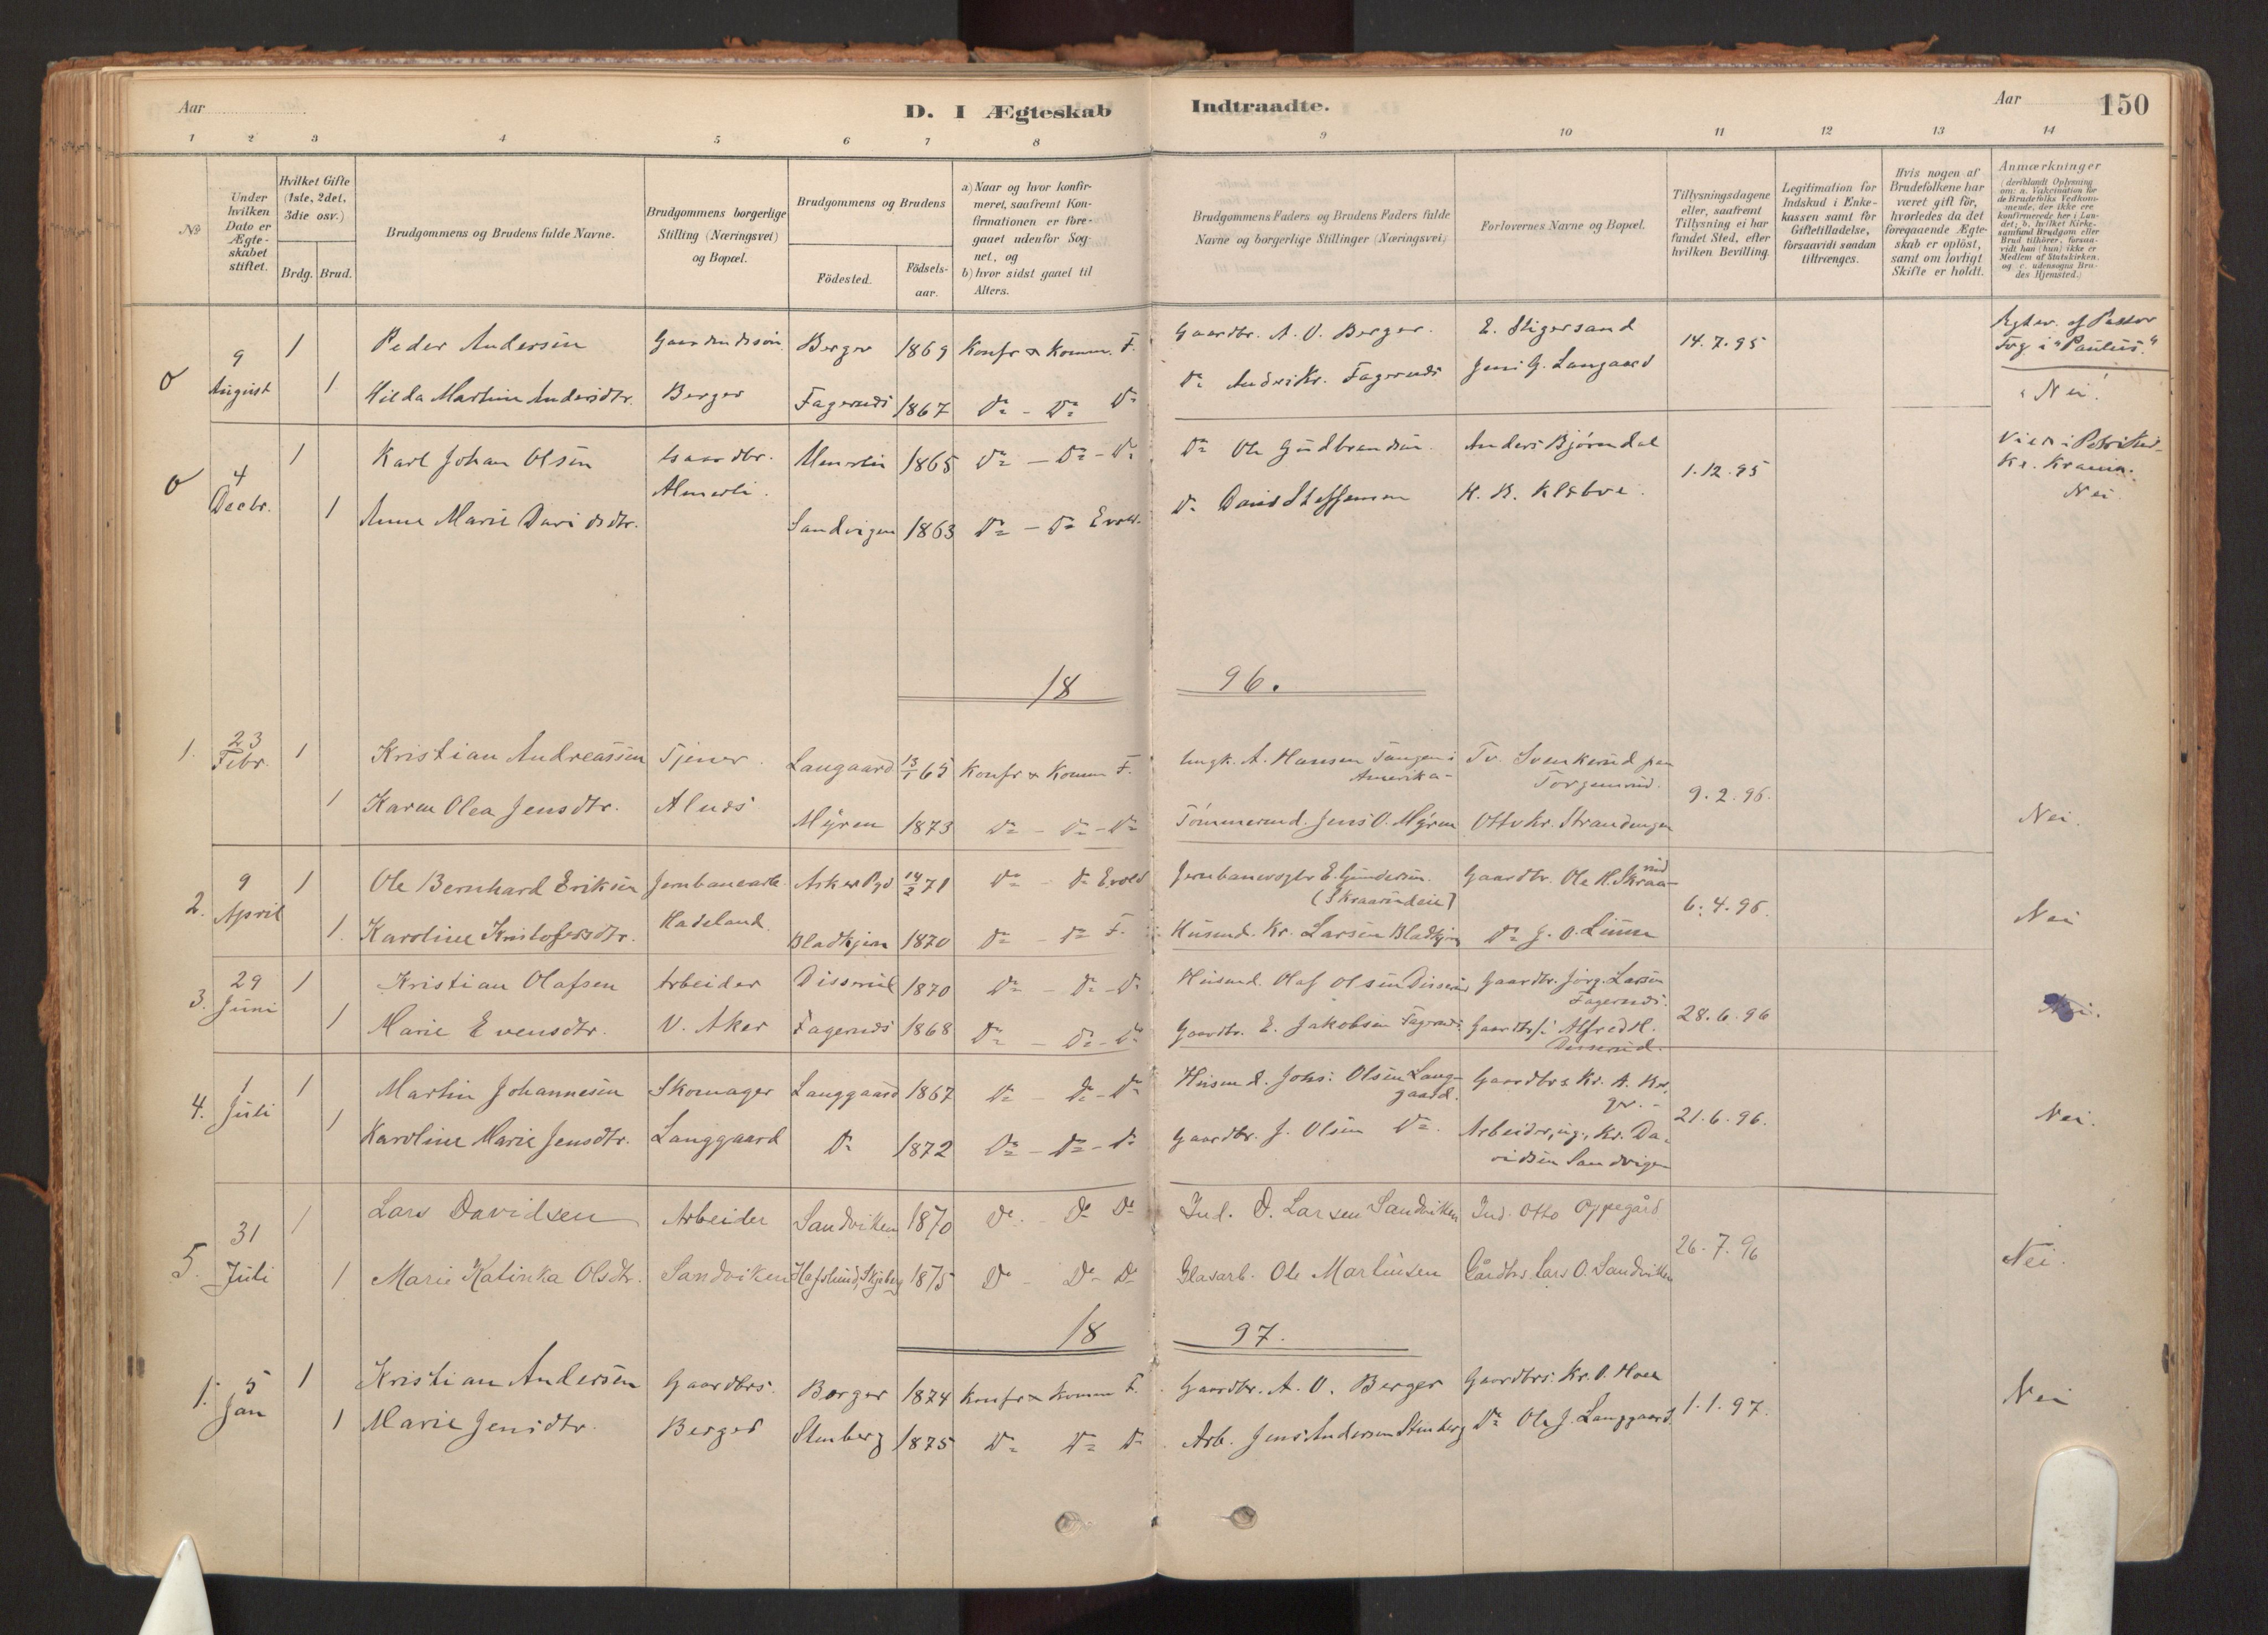 Aar
D. I Ægteskab Indtraadte.
Aar
150
1 2 3 4 5 6 7 8 9 10 11 12 13 14
No
Under hvilken Dato er Ægteskabet stiftet.
Hvilket Gifte (1ste, 2det, 3die osv.)
Brdg. Brud.
Brudgommens og Brudens fulde Navne.
Brudgommens borgerlige Stilling (Næringsvei) og Bopæl.
Brudgommens og Brudens
Födested.
Födselsaar.
a) Naar og hvor konfirmeret, saafremt Konfirmationen er foregaaet udenfor Sognet, og
b) hvor sidst gaaet til Alters.
Brudgommens Faders og Brudens Faders fulde Navne og borgerlige Stillinger (Næringsvei)
Forlovernes Navne og Bopæl.
Tillysningsdagene eller, saafremt Tillysning ei har fundet Sted, efter hvilken Bevilling.
Legitimation for Indskud i Enkekassen samt for Giftetilladelse, forsaavidt saadan tiltrænges.
Hvis nogen af Brudefolkene har været gift før, hvorledes da det foregaaende Ægteskab er oplöst, samt om lovligt Skifte er holdt.
Anmærkninger (deriblandt Oplysning om: a. Vakcination for de Brudefolks Vedkommende, der ikke ere konfirmerede her i Landet; b. hvilket Kirkesamfund Brudgom eller Brud tilhörer, forsaavidt han (hun) ikke er Medlem af Statskirken, og c. udensogns Brudes Hjemsted.)
0 9 August 1 Peder Andersen Gaardmdsön Berger 1869 Konfr & Komm. F. Gaardbr. A. O. Berger. E. Stigersand 14.7.95 Ægtev. af Pastor i "Paulus."
1 Hilda Martine Andersdtr. Berger Fagernæs 1867 Do - Do Do Do Andr. Kr. Fagernæs Jens G. Langaard Nei.
0 4 Decbr. 1 Karl Johan Olsen Gaardbr. Almerli 1865 Do - Do - Do Do Ole Gudbrandsen. Anders Bjørndal 1.12.95 Viet i
Almerli.
1 Anne Marie Davidsdtr. Sandvigen 1863 Do - Do Evold. Do David Steffensen H. B. Klæboe. Nei
18 96.
1. 23 Febr. 1 Kristian Andreassen Tjener. Langaard 13/1 65 Konfr & Komm F. Ungk. A. Hansen Tangen i Amerika- Tv. Svenkerud paa Torgemrud. 9.2.96.
1 Karen Olea Jensdtr. Alnæs Myren 1873 Do - Do - Do Tömmermd. Jens O. Myren Otto Kr. Strandengen Nei.
2. 9 April 1 Ole Bernhard Eriksen Jernbanearb. Asker Pgd 14/2 71 Do - Do Evold Jernbanevogter E. Gundersen. (Skraarudeie) Gaardbr. Ole H. Skraarud 6.4.96.
1. Karoline Kristofersdtr. Hadeland. Bladkjern 1870 Do - Do F. Husmd. Kr. Larsen Bladkjern Do J. O. Linne Nei
3. 29 Juni 1 Kristian Olafsen Arbeider Disserud 1870 Do - Do - Do Husmd. Olaf Olsen Disserud Gaardbr. Jörg. Larsen Fagernæs. 28.6.96
1 Marie Evensdtr. V. Aker Fagernæs 1868 Do - Do - Do Gaardbr. E. Jakobsen Fagernæs Gaardbrs. Alfred H. Disserud. Nei.
4. 1 Juli 1 Martin Johannesen Skomager Langgaard 1867 Do - Do - Do Husmd. Johs: Olsen Langgaard. Gaardbrs Kr. A. Berger. - 21.6.96.
1 Karoline Marie Jensdtr. Langgaard Do 1872 Do - Do - Do Gaardbr. J. Olsen Do. Arbeider, ug., Kr. Davidsen Sandvigen Nei.
5. 31 Juli 1 Lars Davidsen Arbeider Sandviken 1870 Do. - Do Do Ind. D. Larsen Sandviken Ind. Otto Oppegård 26.7.96
1 Marie Katinka Olsdtr. Sandviken Hafslund, Skjeberg 1875 Do - Do - Do Glasarb. Ole Martinsen Gårdbrs Lars O. Sandviken Nei.
18 97.
1. 5 Jan 1 Kristian Andersen Gaardbrs. Berger 1874 Konfr & Komm F. Gaardbr. A. O. Berger Gaardbrs. Kr. O. Hoel 1.1.97.
1 Marie Jensdtr. Berger Stenberg 1875 Do Do Do Arb. Jens Andersen Stenberg Do Ole J. Langgaard. Nei